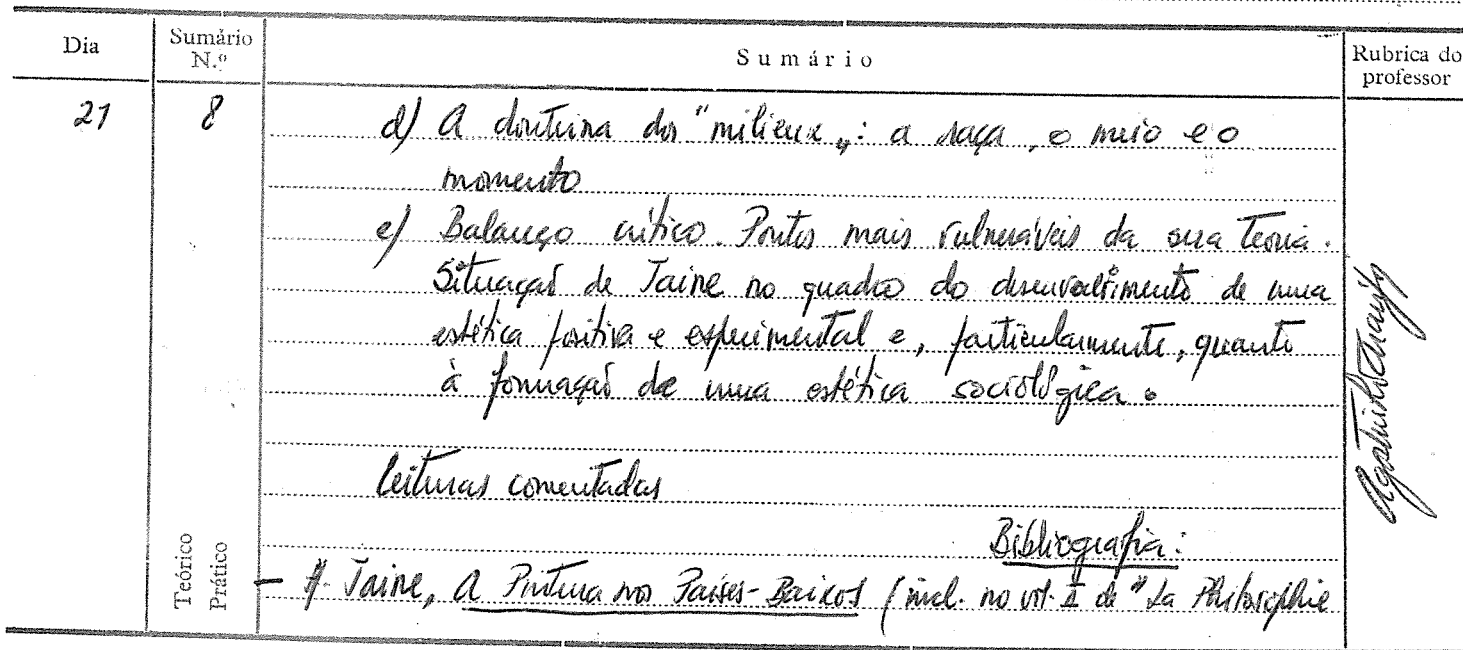 Dia Sumário N.º Sumário Rubrica do professor
21 8 d) A doutrina dos "milieux": a raça, o meio e o
momento
e) Balanço crítico. Pontos mais vulneráveis da sua teoria.
Situação de Taine no quadro do desenvolvimento de uma
estética positiva e experimental e, particularmente, quanto
à formação de uma estética sociológica.
Leituras comentadas
Bibliografia:
Teórico
Prático
- H. Taine, A Pintura nos Países-Baixos (incl. no vol. II de "La Philosophie